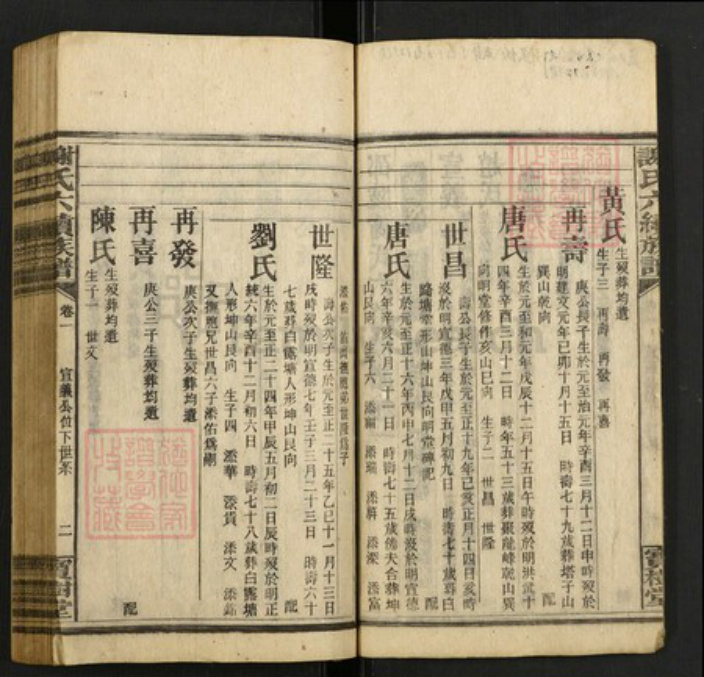 謝氏六續族譜
寶樹堂
黃氏
生歿葬均遺
生子三 再壽 再發 再喜
再壽
庚公長子生於元至治元年辛酉三月十二日申時歿於
明建文元年己卯十月十五日 時壽七十九歲葬塔子山
巽山乾向 配
唐氏
生於元至和元年戊辰十二月十五日午時歿於明洪武十
四年辛酉三月十二日 時年五十三歲葬銀龍峰乾山巽
向明堂修作亥山巳向 生子二 世昌 世隆
世昌
壽公長子生於元至正十九年己亥正月十四日亥時
歿於明宣德三年戊申五月初九日 時壽七十歲葬白
路塘 形山坤山艮向明堂碑記 配
唐氏
生於元至正十六年丙申七月十二日戌時歿於明宣德
六年辛亥六月二十一日 時壽七十五歲備夫合葬坤
山艮向 生子六 添 添瑞 添 添 添富
添佑
世隆
壽公次子生於元至正二十五年乙巳十一月十三日
戌時歿於明宣德七年壬子三月二十三日 時壽六十
七歲葬白露塘人形坤山艮向 配
劉氏
生於元至正二十四年甲辰五月初二日辰時歿於明正
統六年辛酉十二月初六日 時壽七十八歲葬白露塘
人形坤山艮向 生子四 添華 添貴 添文 添錦
又撫胞兄世昌六子添佑為嗣
再發
庚公次子生歿葬均遺
再喜
庚公三子生歿葬均遺 配
陳氏
生歿葬均遺
生子一 世文
謝氏六續族譜
卷一
宣義公位下世系
二
寶樹堂